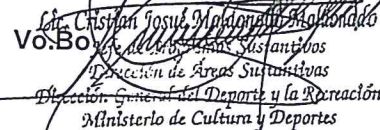 Lic. Cristian Josué Maldonado Maldonado
Vo.Bo.
Sustantivos
Dirección de Áreas Sustantivas
Dirección General del Deporte y la Recreación
Ministerio de Cultura y Deportes